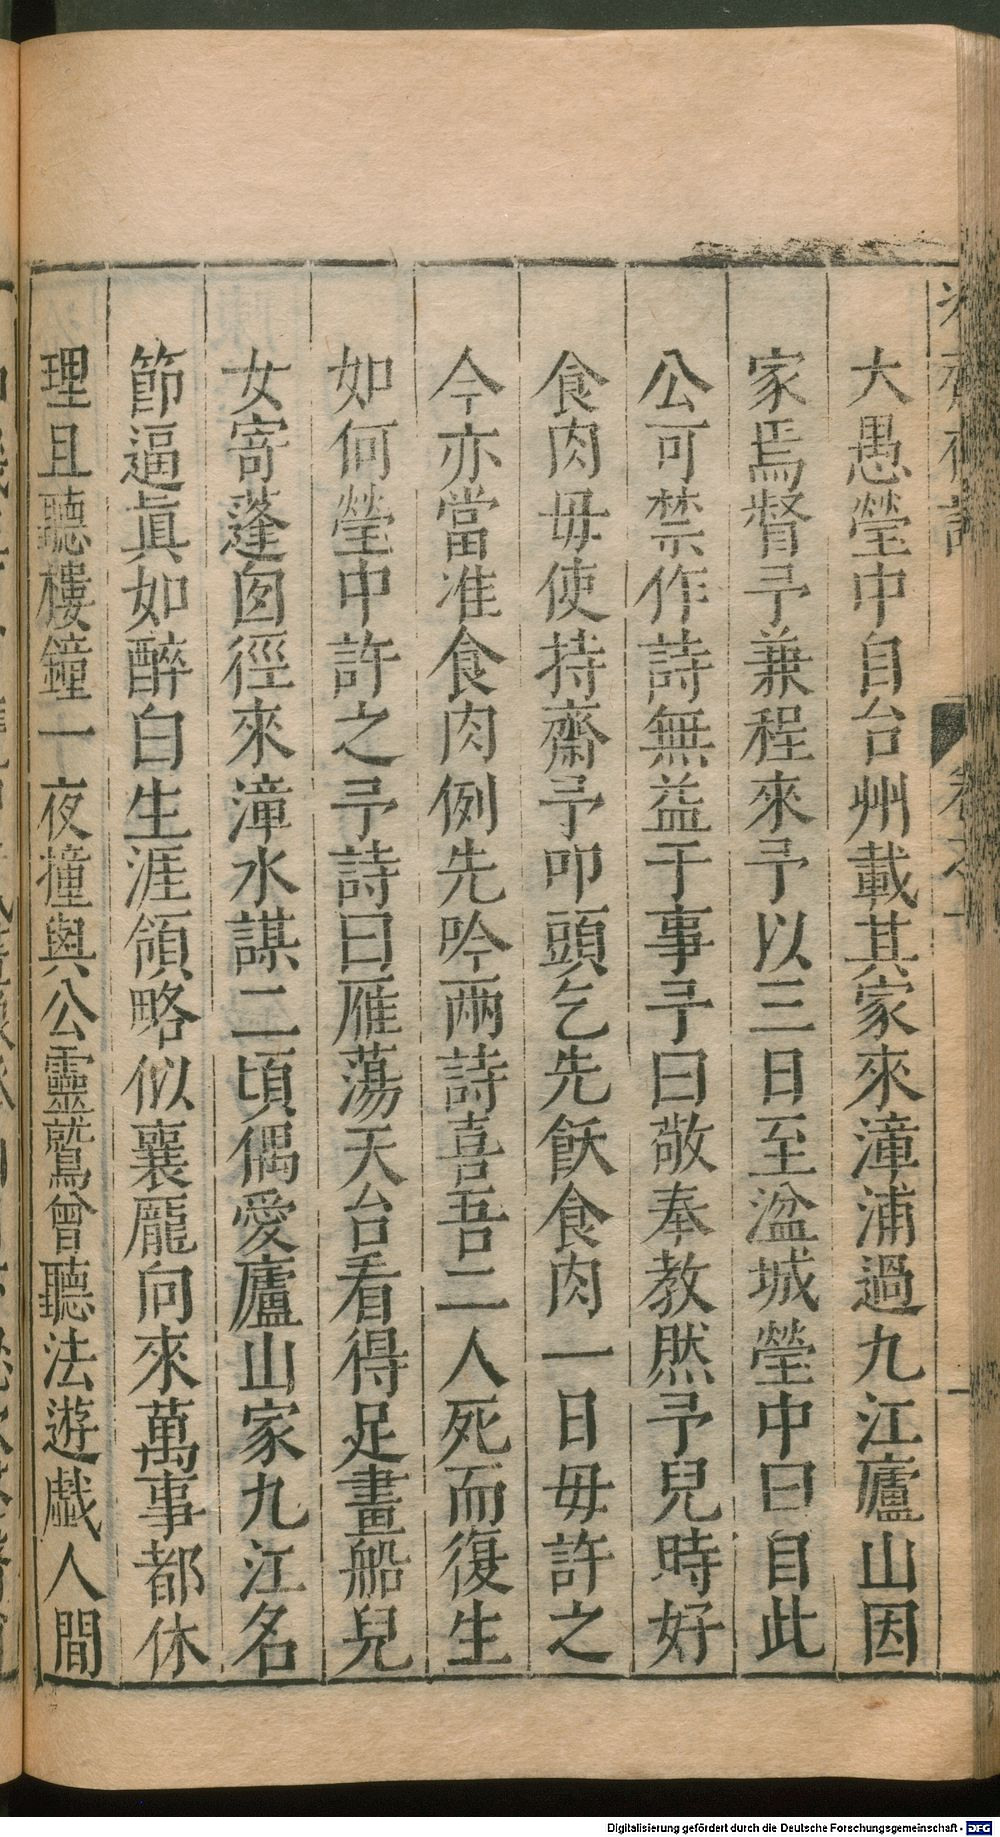 大愚瑩中自台州載其家來漳浦過九江廬山因
家焉督予兼程來予以三日至湓城瑩中曰自此
公可禁作詩無益于事予曰敬奉教然予兒時好
食肉毋使持齋予叩頭乞先飫食肉一日毋許之
今亦當准食肉例先吟兩詩喜吾二人死而復生
如何瑩中許之予詩曰雁蕩天台看得足畫船兒
女寄蓬囱徑來漳水謀二頃偶愛廬山家九江名
節逼眞如醉白生涯領略似襄龎向來萬事都休
理且聽樓鐘一夜撞與公靈鷲曾聽法遊戲人間
Digitalisierung gefördert durch die Deutsche Forschungsgemeinschaft - DFG